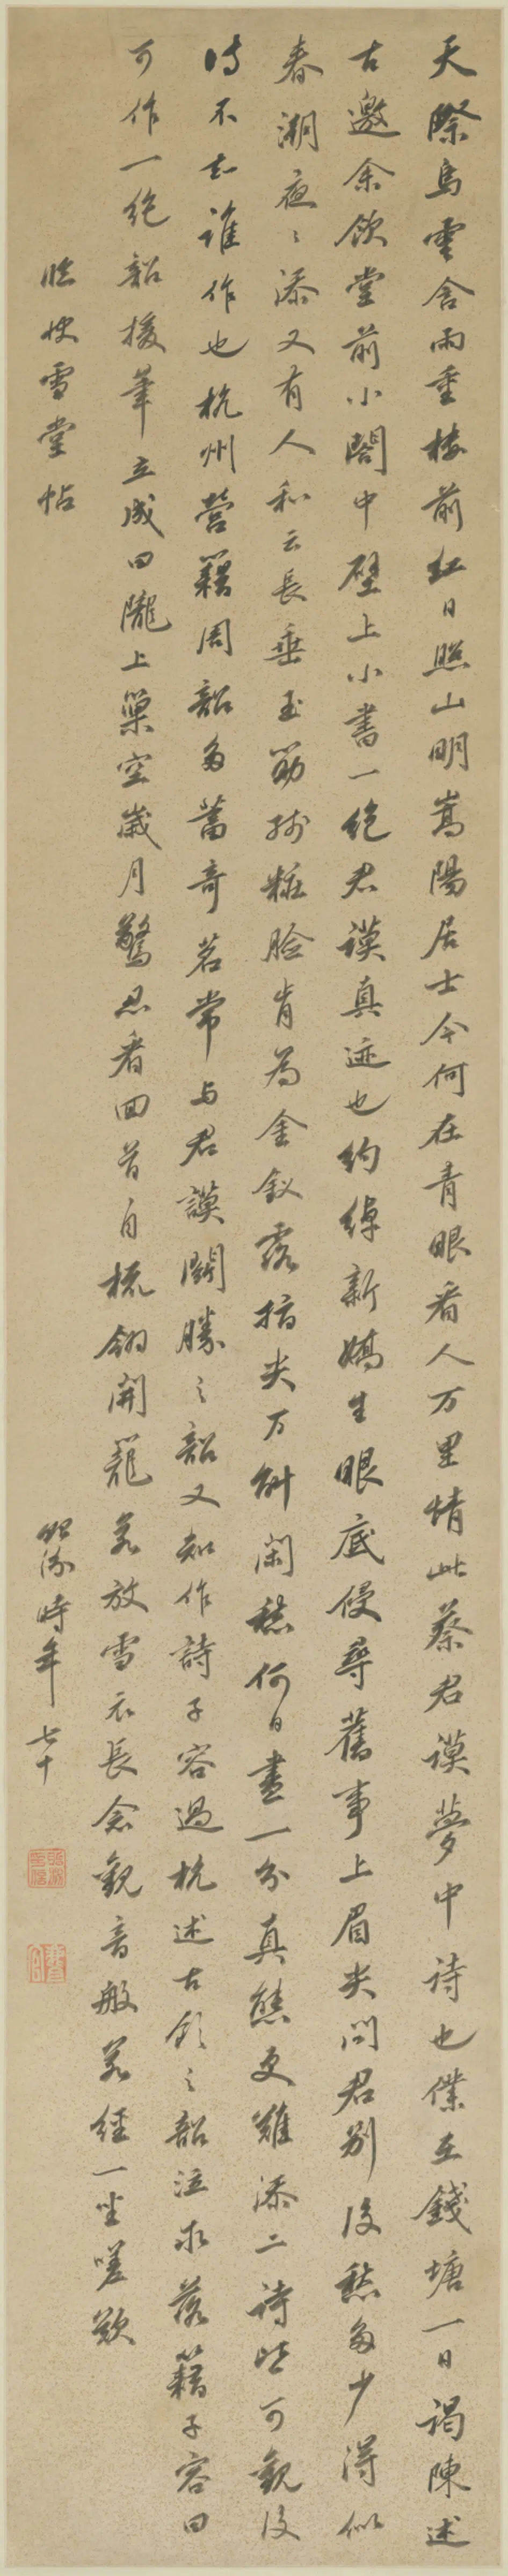 天際烏雲含雨重樓前紅日照山明嵩陽居士今何在青眼看人万里情此蔡君謨夢中詩也僕在錢塘一日謁陳述
古邀余飲堂前小閣中壁上小書一絕君謨真迹也約綽新嬌生眼底侵尋舊事上眉尖問君別後愁多少得似
春潮夜〻添又有人和云長垂玉筯殘粧臉肯為金釵露指尖万斛閑愁何日盡一分真態更難添二詩皆可觀後
詩不知誰作也杭州營籍周韶多蓄奇茗常与君謨鬭勝之韶又知作詩子容過杭述古飲之韶泣求落籍子容曰
可作一絕韶援筆立成曰隴上巢空歲月驚忍看回首自梳翎開籠若放雪衣長念觀音般若經一坐嗟歎
臨快雪堂帖
照時年七十